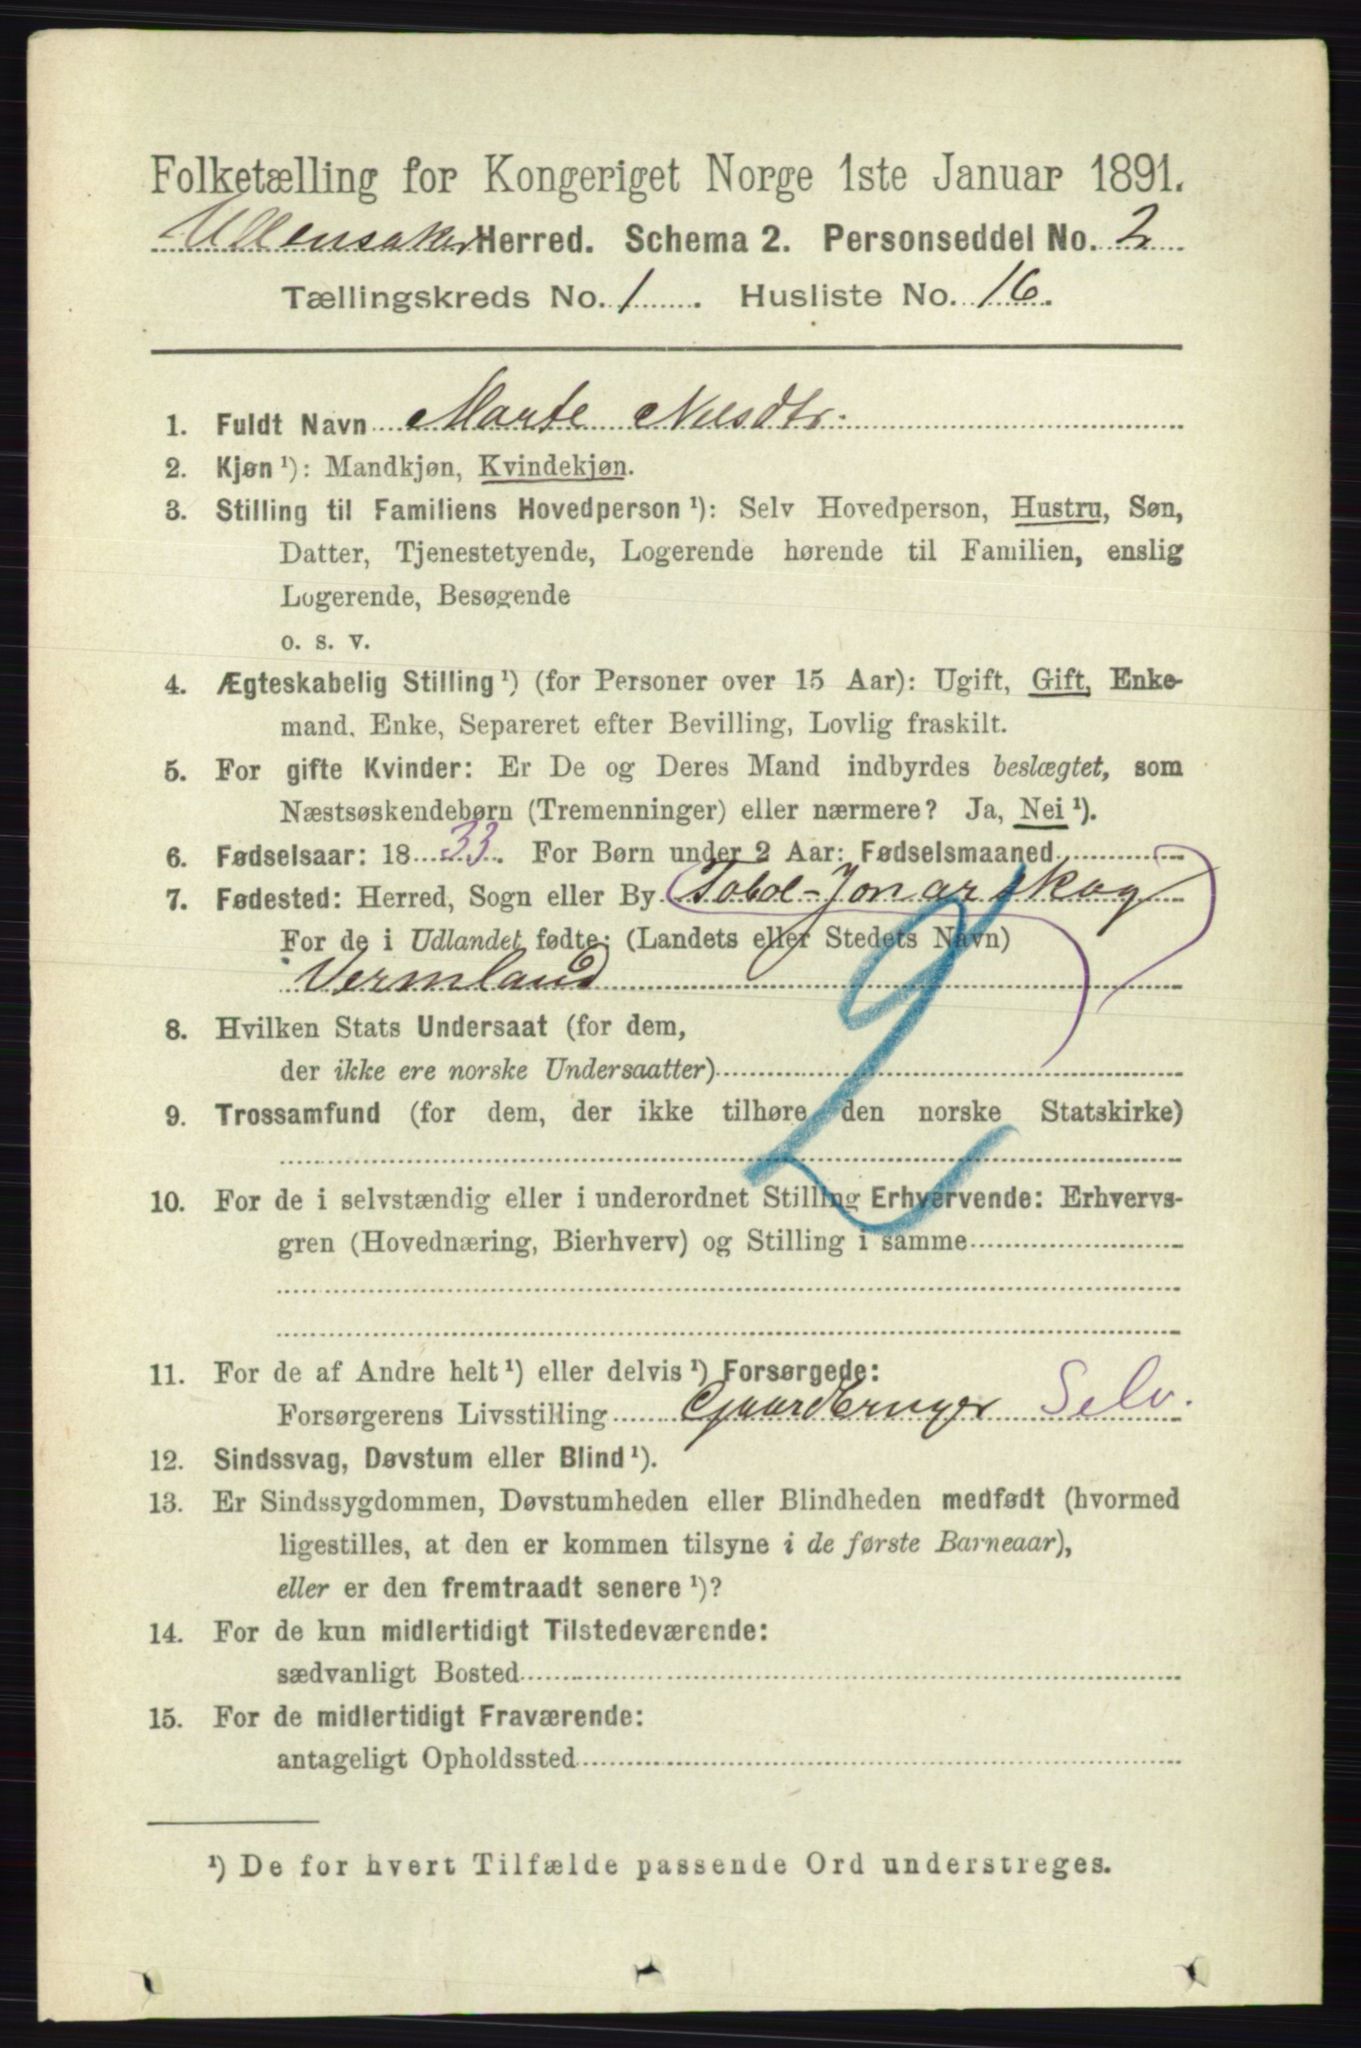 Folketælling for Kongeriget Norge 1ste Januar 1891.
Ullensaker Herred. Schema 2. Personseddel No. 2
Tællingskreds No. 1. Husliste No. 16.
1. Fuldt Navn Marte Nilsdtr.
2. Kjøn ¹): Mandkjøn, Kvindekjøn.
3. Stilling til Familiens Hovedperson ¹): Selv Hovedperson, Hustru, Søn,
Datter, Tjenestetyende, Logerende hørende til Familien, enslig
Logerende, Besøgende
o. s. v.
4. Ægteskabelig Stilling ¹) (for Personer over 15 Aar): Ugift, Gift, Enke-
mand, Enke, Separeret efter Bevilling, Lovlig fraskilt.
5. For gifte Kvinder: Er De og Deres Mand indbyrdes beslægtet, som
Næstsøskendebørn (Tremenninger) eller nærmere? Ja, Nei ¹).
6. Fødselsaar: 1833. For Børn under 2 Aar: Fødselsmaaned
7. Fødested: Herred, Sogn eller By
For de i Udlandet fødte: (Landets eller Stedets Navn)
Vermland
2
8. Hvilken Stats Undersaat (for dem,
der ikke ere norske Undersaatter)
9. Trossamfund (for dem, der ikke tilhøre den norske Statskirke)
10. For de i selvstændig eller i underordnet Stilling Erhvervende: Erhvervs-
gren (Hovednæring, Bierhverv) og Stilling i samme
11. For de af Andre helt ¹) eller delvis ¹) Forsørgede:
Forsørgerens Livsstilling Gaardbruger Selv.
12. Sindssvag, Døvstum eller Blind ¹).
13. Er Sindssygdommen, Døvstumheden eller Blindheden medfødt (hvormed
ligestilles, at den er kommen tilsyne i de første Barneaar),
eller er den fremtraadt senere ¹)?
14. For de kun midlertidigt Tilstedeværende:
sædvanligt Bosted
15. For de midlertidigt Fraværende:
antageligt Opholdssted
¹) De for hvert Tilfælde passende Ord understreges.